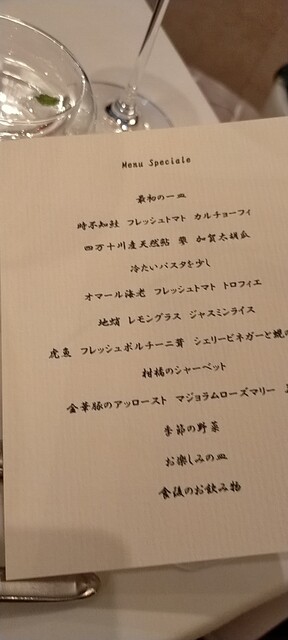 Menu Speciale
最初の一皿
時不知鮭 フレッシュトマト カルチョーフィ
四万十川産天然鮎 蓼 加賀太胡瓜
冷たいパスタを少し
オマール海老 フレッシュトマト トロフィエ
地蛸 レモングラス ジャスミンライス
虎魚 フレッシュポルチーニ茸 シェリービネガーと
柑橘のシャーベット
金華豚のアッロースト マジョラムローズマリー
季節の野菜
お楽しみの皿
食後のお飲み物